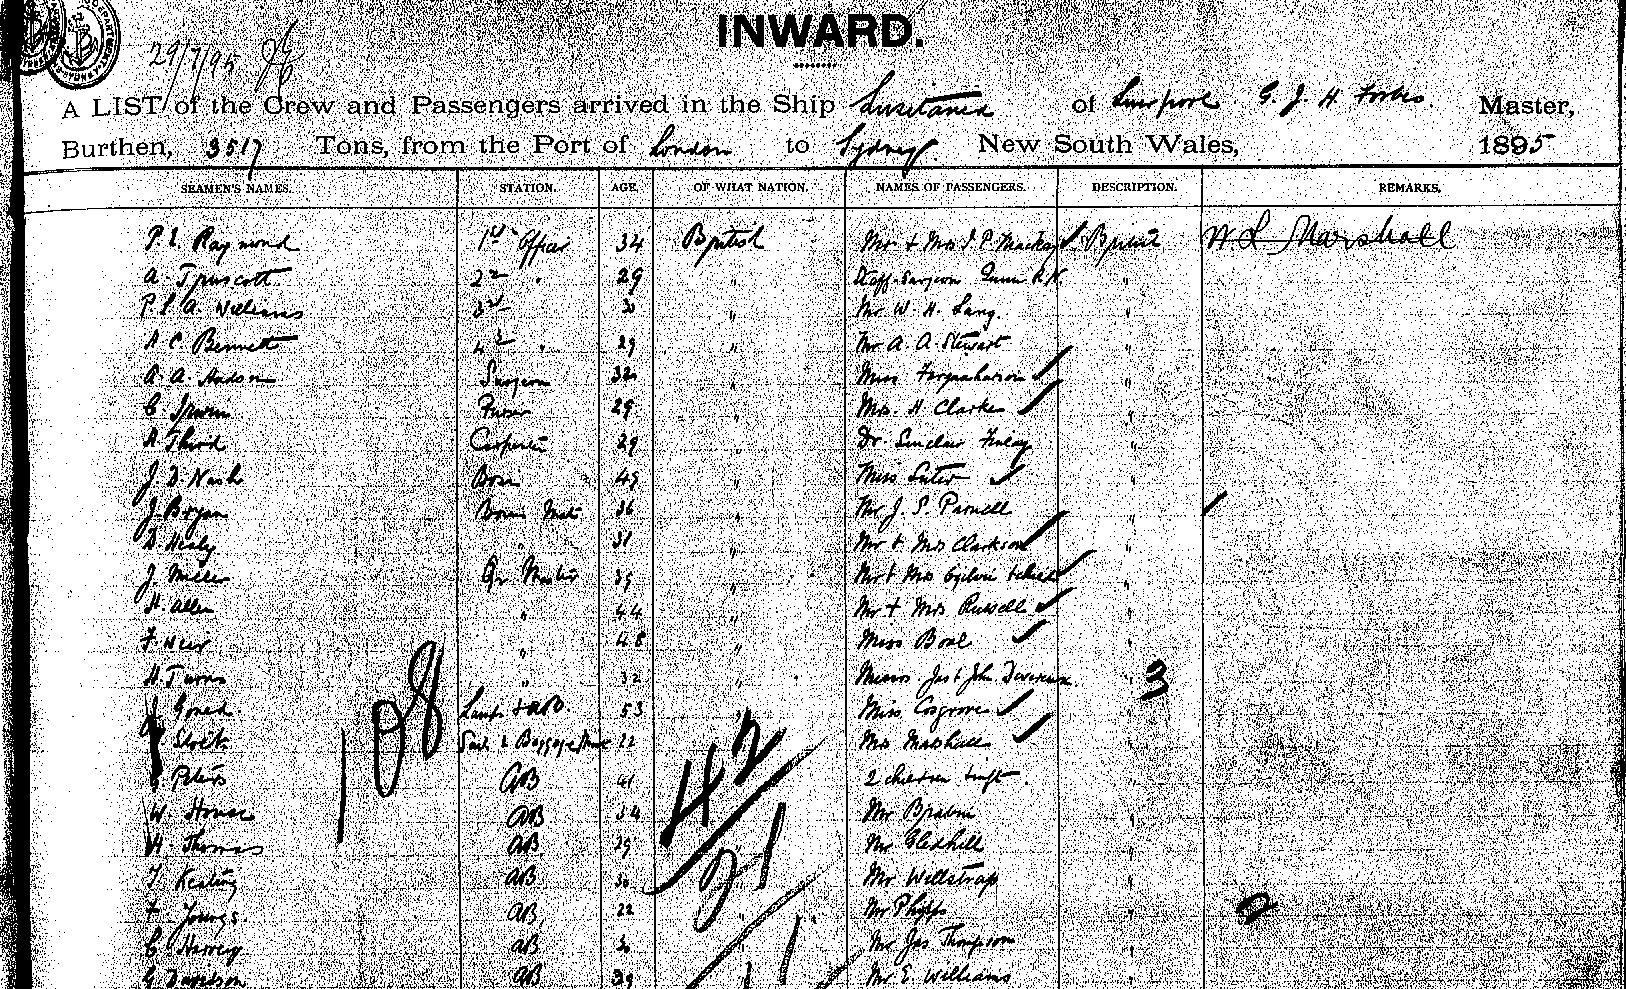 INWARD.
29/7/95
A LIST of the Crew and Passengers arrived in the Ship Lusitania of Liverpool G. J. H. Forbes. Master,
Burthen, 3517 Tons, from the Port of London to Sydney. New South Wales, 1895
SEAMEN'S NAMES. STATION. AGE. OF WHAT NATION. NAMES OF PASSENGERS. DESCRIPTION. REMARKS.
Raymond 1st Officer 34 British Mr & Mrs J. P. Mackay British W L Marshall
A Truscott 2nd " 29 " Staff-Surgeon Gunn R.N. "
Williams 3rd 30 " Mr W. H. Lang. "
A C. Bennett 4th " 29 " Mr A. A. Stewart "
A. A. Hudson Surgeon 32 " Miss Farquharson "
C Purser 29 " Mrs. H Clarke "
A Third Carpenter 29 " Dr. Sinclair Finlay "
J. D. Nash Bosn 49 " Miss Suter "
J. Bryan Bosns Mate 36 " Mr J. S. Parnell "
D. Healy " 31 " Mr & Mrs Clarkson "
J. Miller Qr Master 39 " Mr & Mrs Ogilvie "
H. Allen " 44 " Mr & Mrs Russell "
F. Weir " 48 " Miss Boal "
H. " 32 " Jas & John 3
Lamps & AB. 53 " Miss Cosgrove "
108
Stock Baggage 22 Mrs Marshall "
42
Peters AB 41 2 children "
W. House AB 34 Mr "
H Thomas AB 29 Mr Gledhill "
21
T Keating AB 30 Mr Willstrop "
Youngs. AB 22 " Mr Phipps " 2
C Harvey AB 30 Mr Jas Thompson "
G Davidson AB 39 " Mr E. Williams "